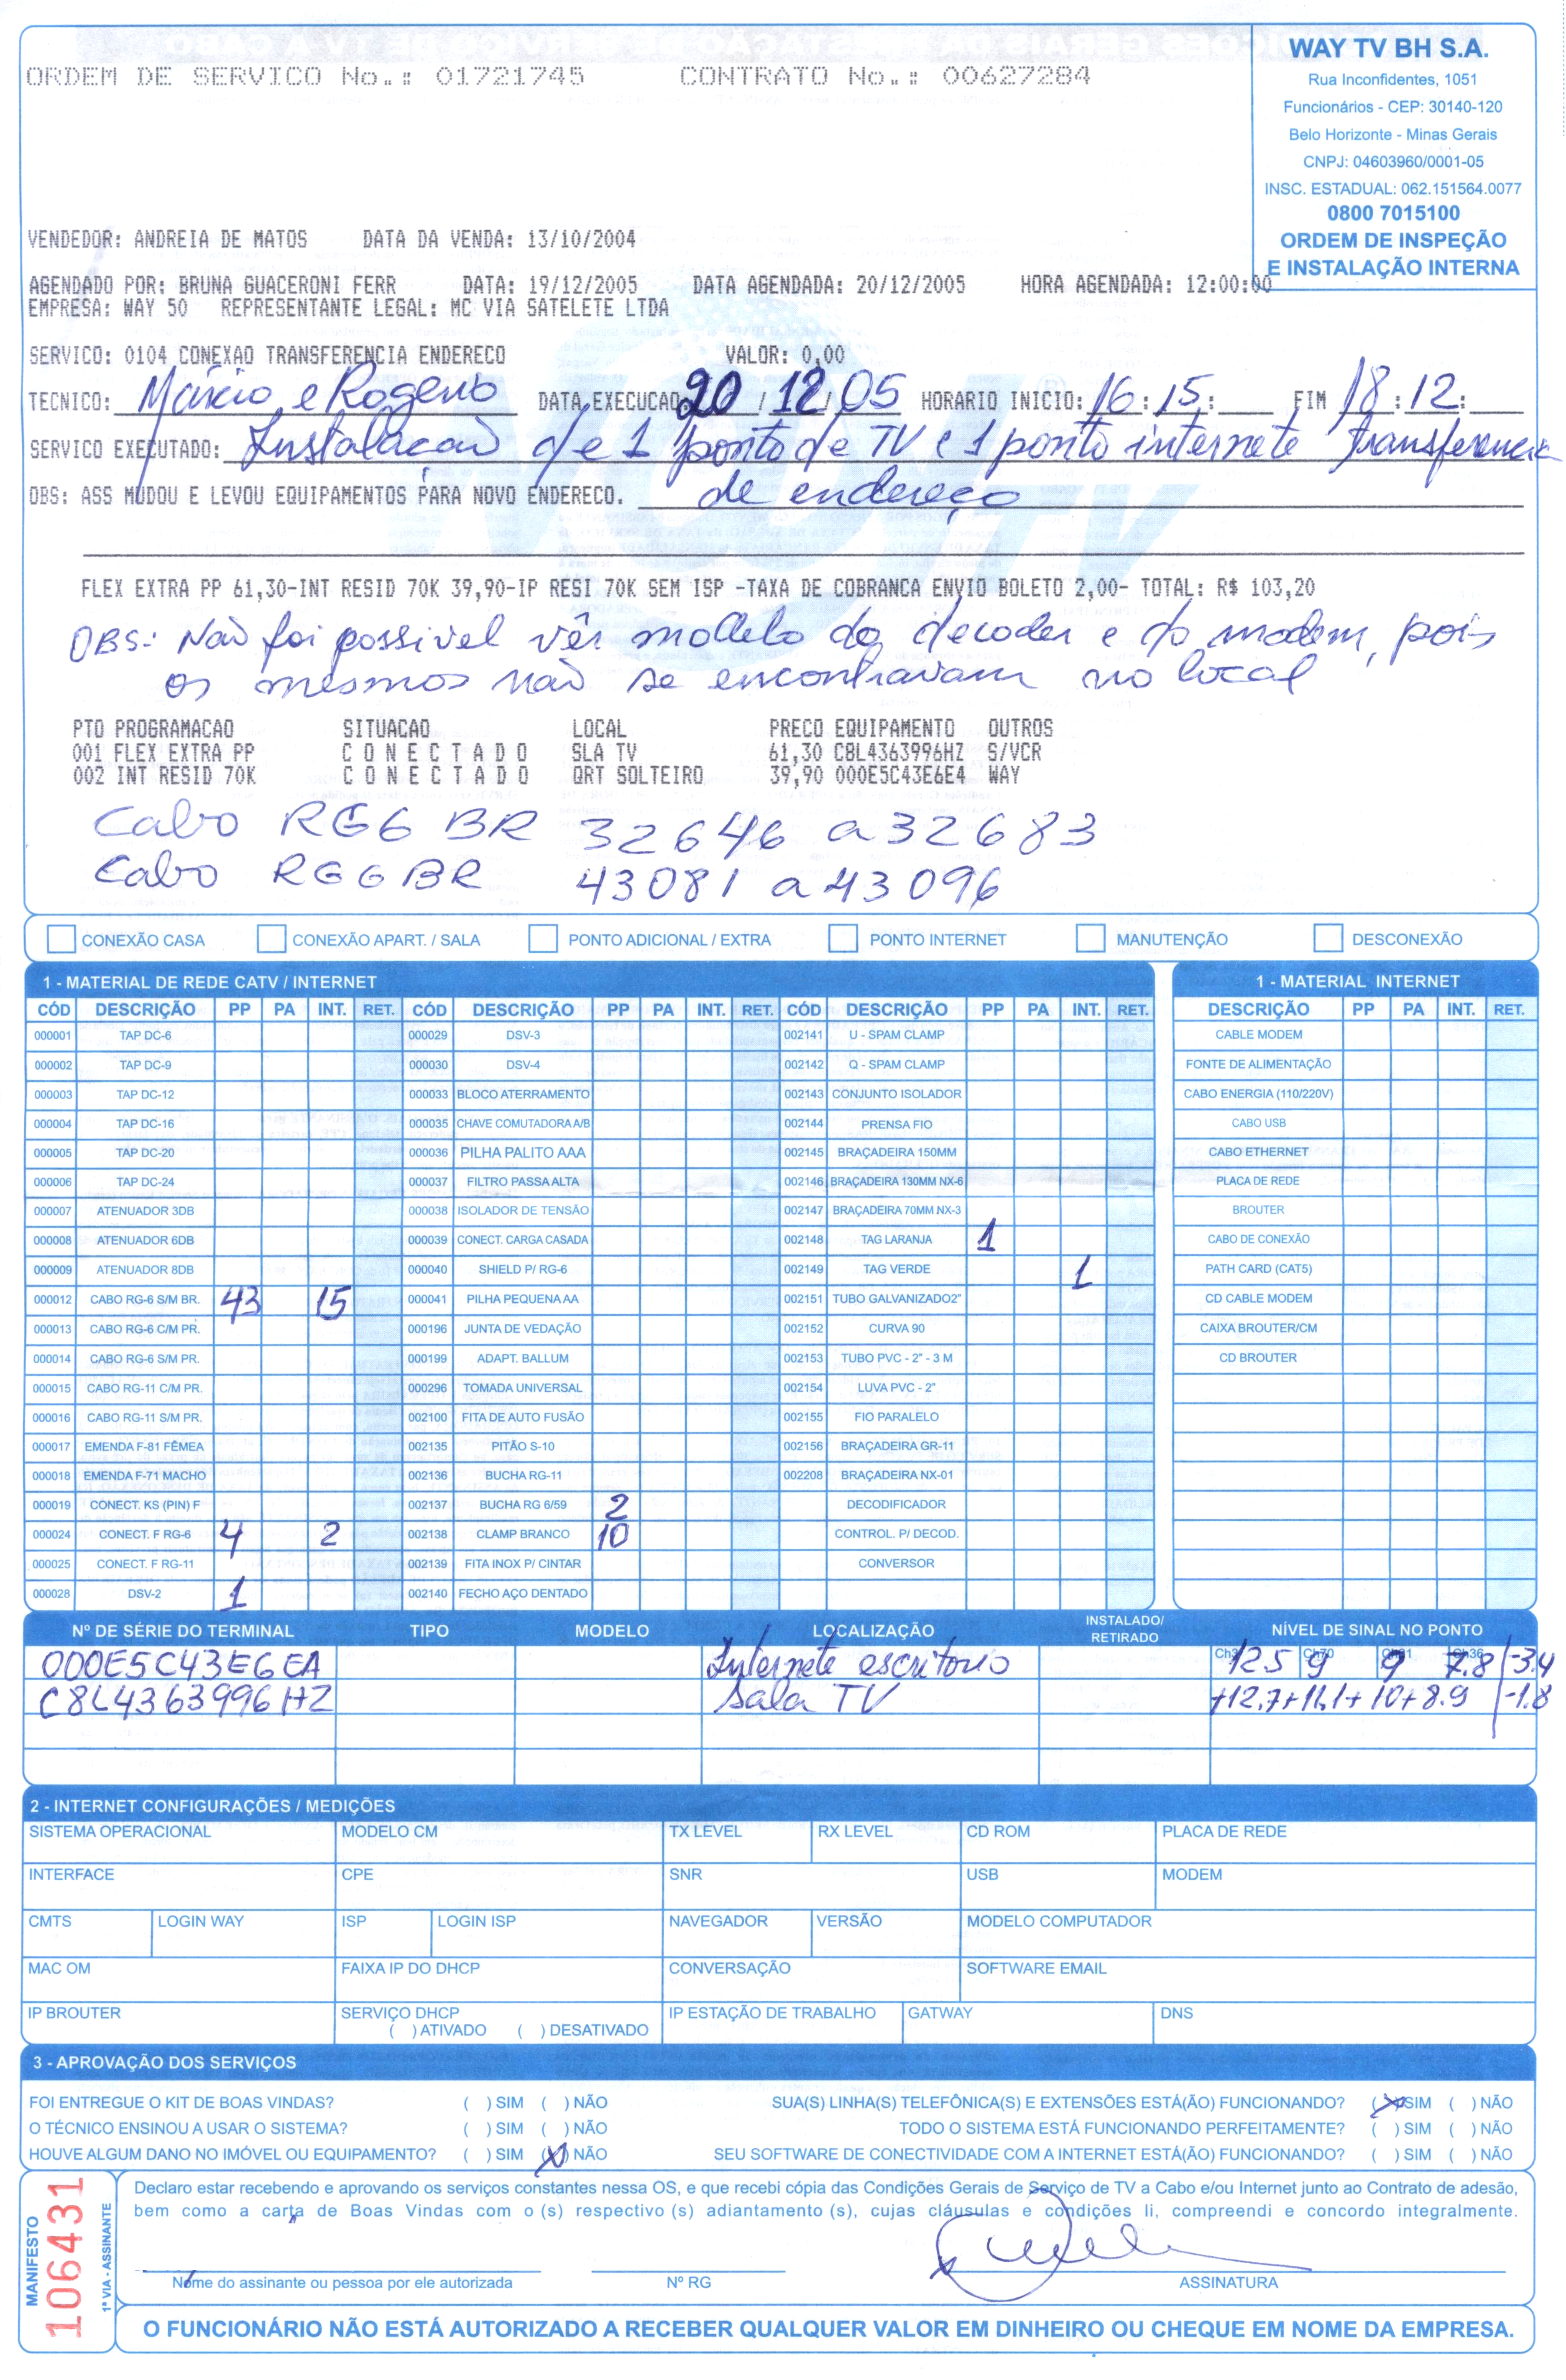 ORDEM DE SERVICO No.: 01721745 CONTRATO No.: 00627284
WAY TV BH S.A.
Rua Inconfidentes, 1051
Funcionários - CEP: 30140-120
Belo Horizonte - Minas Gerais
CNPJ: 04603960/0001-05
INSC. ESTADUAL: 062.151564.0077
0800 7015100
ORDEM DE INSPEÇÃO
E INSTALAÇÃO INTERNA
VENDEDOR: ANDREIA DE MATOS DATA DA VENDA: 13/10/2004
AGENDADO POR: BRUNA GUACERONI FERR DATA: 19/12/2005 DATA AGENDADA: 20/12/2005 HORA AGENDADA: 12:00:00
EMPRESA: WAY 50 REPRESENTANTE LEGAL: MC VIA SATELETE LTDA
SERVICO: 0104 CONEXAO TRANSFERENCIA ENDERECO VALOR: 0,00
TECNICO: Márcio e Rogerio DATA EXECUCAO: 20 / 12 / 05 HORARIO INICIO: 16 : 15 : FIM 18 : 12 :
SERVICO EXECUTADO: Instalacao de 1 ponto de TV e 1 ponto internete transferencia
OBS: ASS MUDOU E LEVOU EQUIPAMENTOS PARA NOVO ENDERECO. de endereço
FLEX EXTRA PP 61,30-INT RESID 70K 39,90-IP RESI 70K SEM ISP -TAXA DE COBRANCA ENVIO BOLETO 2,00- TOTAL: R$ 103,20
OBS: Não foi possivel vêr modelo do decoder e do modem, pois
os mesmos não se encontravam no local
PTO PROGRAMACAO SITUACAO LOCAL PRECO EQUIPAMENTO OUTROS
001 FLEX EXTRA PP C O N E C T A D O SLA TV 61,30 C8L4363996HZ S/VCR
002 INT RESID 70K C O N E C T A D O QRT SOLTEIRO 39,90 000E5C43E6E4 WAY
Cabo RG6 BR 32646 a 32683
Cabo RG6 BR 43081 a 43096
CONEXÃO CASA CONEXÃO APART. / SALA PONTO ADICIONAL / EXTRA PONTO INTERNET MANUTENÇÃO DESCONEXÃO
1 - MATERIAL DE REDE CATV / INTERNET 1 - MATERIAL INTERNET
CÓD DESCRIÇÃO PP PA INT. RET. CÓD DESCRIÇÃO PP PA INT. RET. CÓD DESCRIÇÃO PP PA INT. RET. DESCRIÇÃO PP PA INT. RET.
000001 TAP DC-6 000029 DSV-3 002141 U - SPAM CLAMP CABLE MODEM
000002 TAP DC-9 000030 DSV-4 002142 Q - SPAM CLAMP FONTE DE ALIMENTAÇÃO
000003 TAP DC-12 000033 BLOCO ATERRAMENTO 002143 CONJUNTO ISOLADOR CABO ENERGIA (110/220V)
000004 TAP DC-16 000035 CHAVE COMUTADORA A/B 002144 PRENSA FIO CABO USB
000005 TAP DC-20 000036 PILHA PALITO AAA 002145 BRAÇADEIRA 150MM CABO ETHERNET
000006 TAP DC-24 000037 FILTRO PASSA ALTA 002146 BRAÇADEIRA 130MM NX-6 PLACA DE REDE
000007 ATENUADOR 3DB 000038 ISOLADOR DE TENSÃO 002147 BRAÇADEIRA 70MM NX-3 BROUTER
000008 ATENUADOR 6DB 000039 CONECT. CARGA CASADA 002148 TAG LARANJA 1 CABO DE CONEXÃO
000009 ATENUADOR 8DB 000040 SHIELD P/ RG-6 002149 TAG VERDE 1 PATH CARD (CAT5)
000012 CABO RG-6 S/M BR. 43 15 000041 PILHA PEQUENA AA 002151 TUBO GALVANIZADO2" CD CABLE MODEM
000013 CABO RG-6 C/M PR. 000196 JUNTA DE VEDAÇÃO 002152 CURVA 90 CAIXA BROUTER/CM
000014 CABO RG-6 S/M PR. 000199 ADAPT. BALLUM 002153 TUBO PVC - 2" - 3 M CD BROUTER
000015 CABO RG-11 C/M PR. 000296 TOMADA UNIVERSAL 002154 LUVA PVC - 2"
000016 CABO RG-11 S/M PR. 002100 FITA DE AUTO FUSÃO 002155 FIO PARALELO
000017 EMENDA F-81 FÊMEA 002135 PITÃO S-10 002156 BRAÇADEIRA GR-11
000018 EMENDA F-71 MACHO 002136 BUCHA RG-11 002208 BRAÇADEIRA NX-01
000019 CONECT. KS (PIN) F 002137 BUCHA RG 6/59 2 DECODIFICADOR
000024 CONECT. F RG-6 4 2 002138 CLAMP BRANCO 10 CONTROL. P/ DECOD.
000025 CONECT. F RG-11 002139 FITA INOX P/ CINTAR CONVERSOR
000028 DSV-2 1 002140 FECHO AÇO DENTADO
Nº DE SÉRIE DO TERMINAL TIPO MODELO LOCALIZAÇÃO INSTALADO/ RETIRADO NÍVEL DE SINAL NO PONTO
000E5C43E6EA Internete escritorio 125 9 9 7.8 -3.4
C8L4363996HZ Sala TV +12.7+11.1+10+8.9 -1.8
2 - INTERNET CONFIGURAÇÕES / MEDIÇÕES
SISTEMA OPERACIONAL MODELO CM TX LEVEL RX LEVEL CD ROM PLACA DE REDE
INTERFACE CPE SNR USB MODEM
CMTS LOGIN WAY ISP LOGIN ISP NAVEGADOR VERSÃO MODELO COMPUTADOR
MAC OM FAIXA IP DO DHCP CONVERSAÇÃO SOFTWARE EMAIL
IP BROUTER SERVIÇO DHCP IP ESTAÇÃO DE TRABALHO GATWAY DNS
( ) ATIVADO ( ) DESATIVADO
3 - APROVAÇÃO DOS SERVIÇOS
FOI ENTREGUE O KIT DE BOAS VINDAS? ( ) SIM ( ) NÃO SUA(S) LINHA(S) TELEFÔNICA(S) E EXTENSÕES ESTÁ(ÃO) FUNCIONANDO? (X) SIM ( ) NÃO
O TÉCNICO ENSINOU A USAR O SISTEMA? ( ) SIM ( ) NÃO TODO O SISTEMA ESTÁ FUNCIONANDO PERFEITAMENTE? ( ) SIM ( ) NÃO
HOUVE ALGUM DANO NO IMÓVEL OU EQUIPAMENTO? ( ) SIM (X) NÃO SEU SOFTWARE DE CONECTIVIDADE COM A INTERNET ESTÁ(ÃO) FUNCIONANDO? ( ) SIM ( ) NÃO
MANIFESTO
106431
1ª VIA - ASSINANTE
Declaro estar recebendo e aprovando os serviços constantes nessa OS, e que recebi cópia das Condições Gerais de Serviço de TV a Cabo e/ou Internet junto ao Contrato de adesão,
bem como a carta de Boas Vindas com o (s) respectivo (s) adiantamento (s), cujas cláusulas e condições li, compreendi e concordo integralmente.
Nome do assinante ou pessoa por ele autorizada Nº RG ASSINATURA
O FUNCIONÁRIO NÃO ESTÁ AUTORIZADO A RECEBER QUALQUER VALOR EM DINHEIRO OU CHEQUE EM NOME DA EMPRESA.